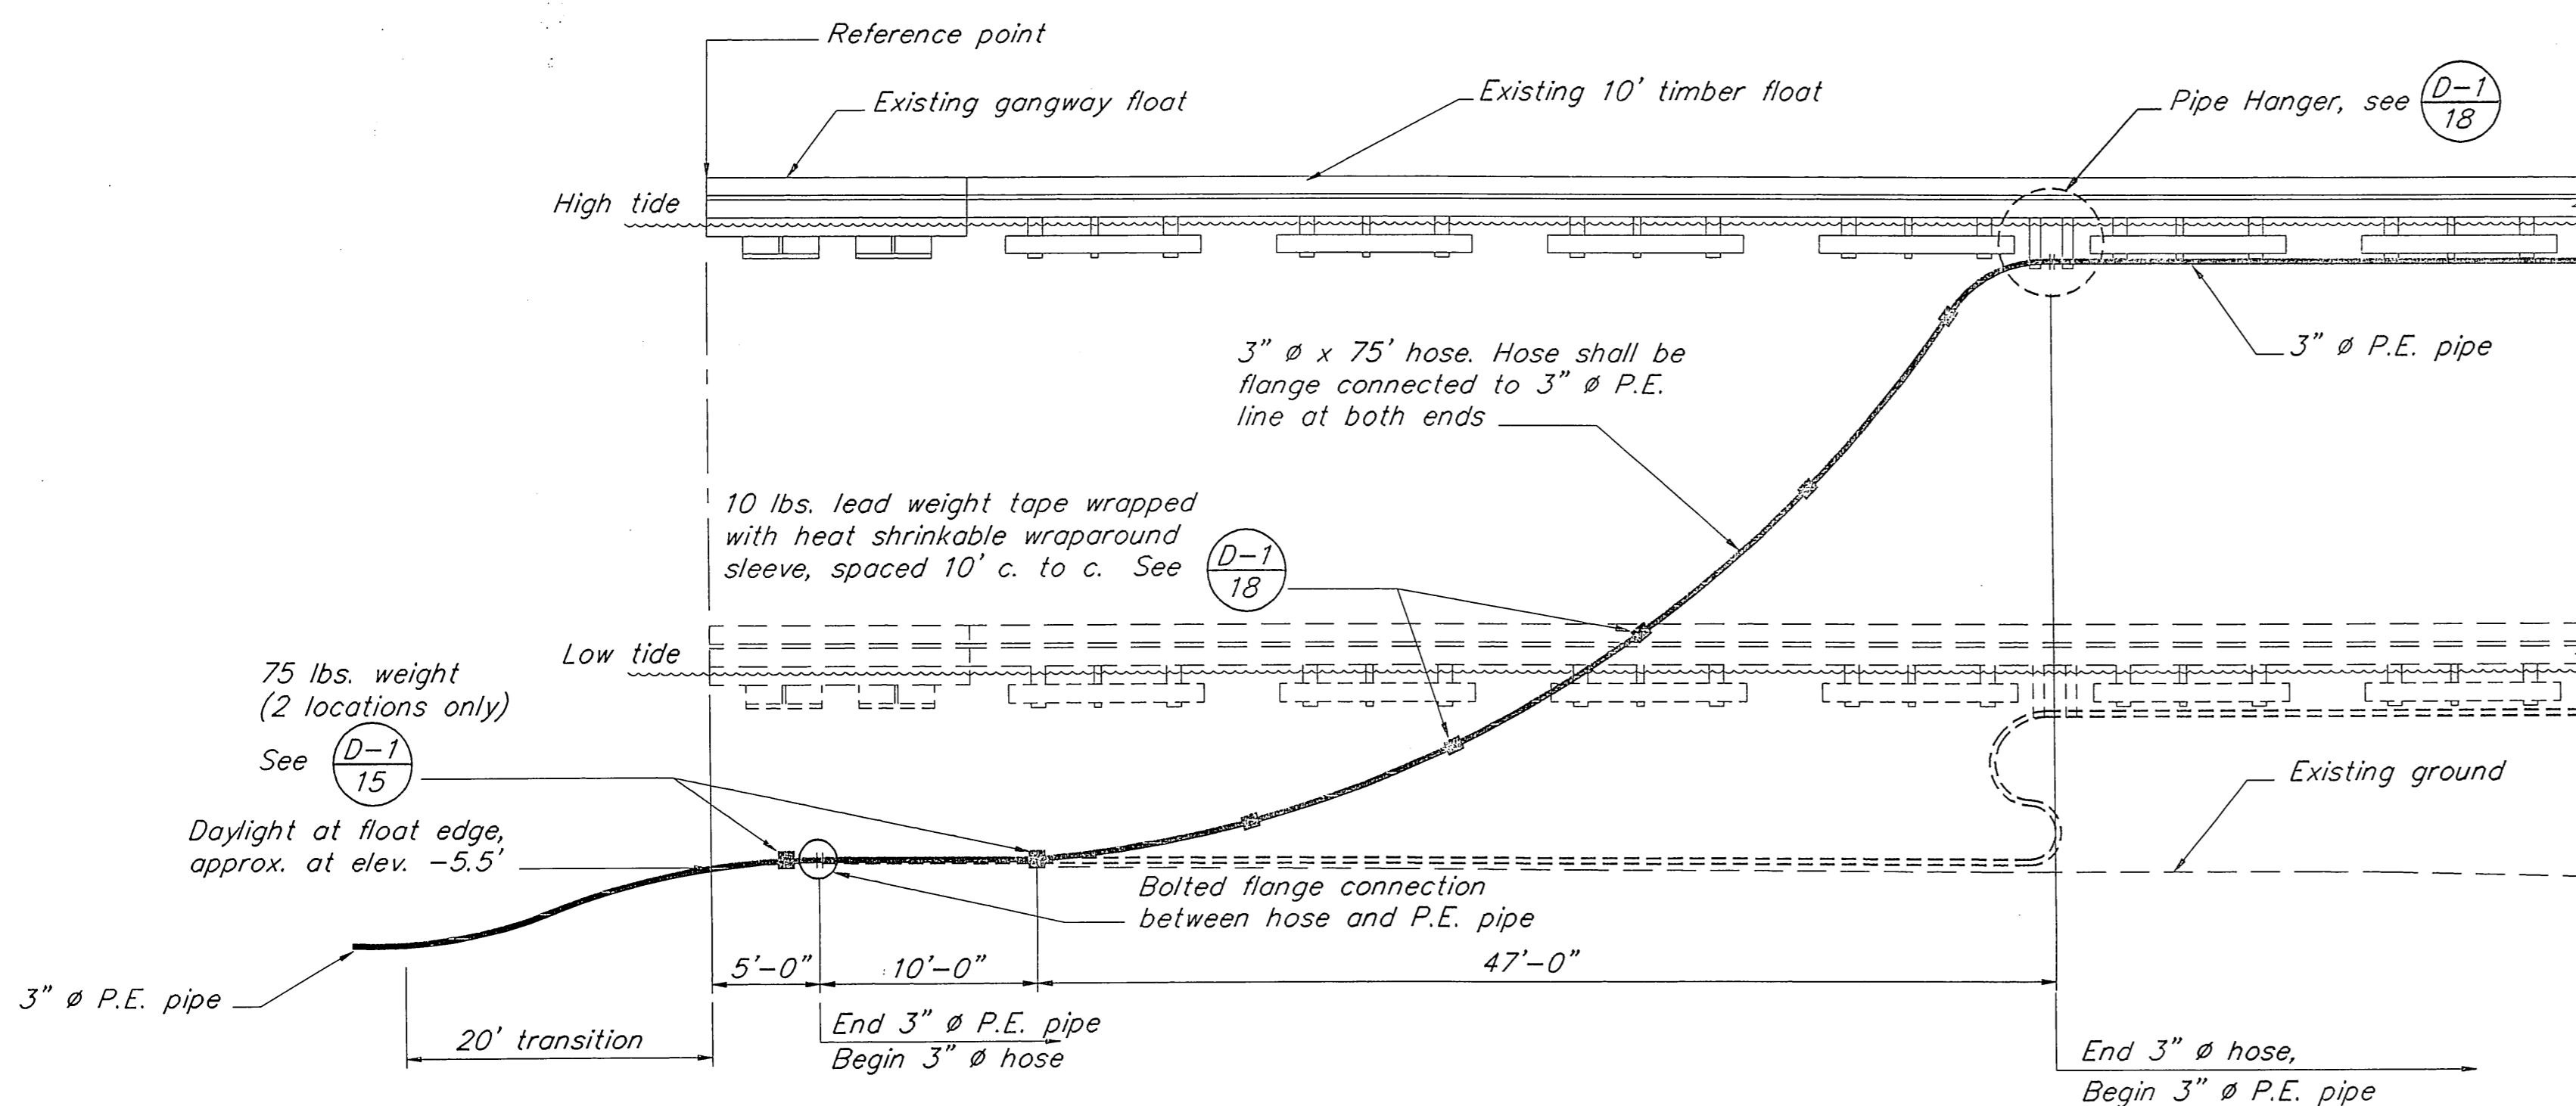 Reference point
Existing gangway float
Existing 10' timber float
Pipe Hanger, see D-1
18
High tide
3" ø x 75' hose. Hose shall be
flange connected to 3" ø P.E.
line at both ends
3" ø P.E. pipe
10 lbs. lead weight tape wrapped
with heat shrinkable wraparound
sleeve, spaced 10' c. to c. See D-1
18
Low tide
75 lbs. weight
(2 locations only)
See D-1
15
Existing ground
Daylight at float edge,
approx. at elev. -5.5'
Bolted flange connection
between hose and P.E. pipe
5'-0"
10'-0"
47'-0"
3" ø P.E. pipe
20' transition
End 3" ø P.E. pipe
Begin 3" ø hose
End 3" ø hose,
Begin 3" ø P.E. pipe